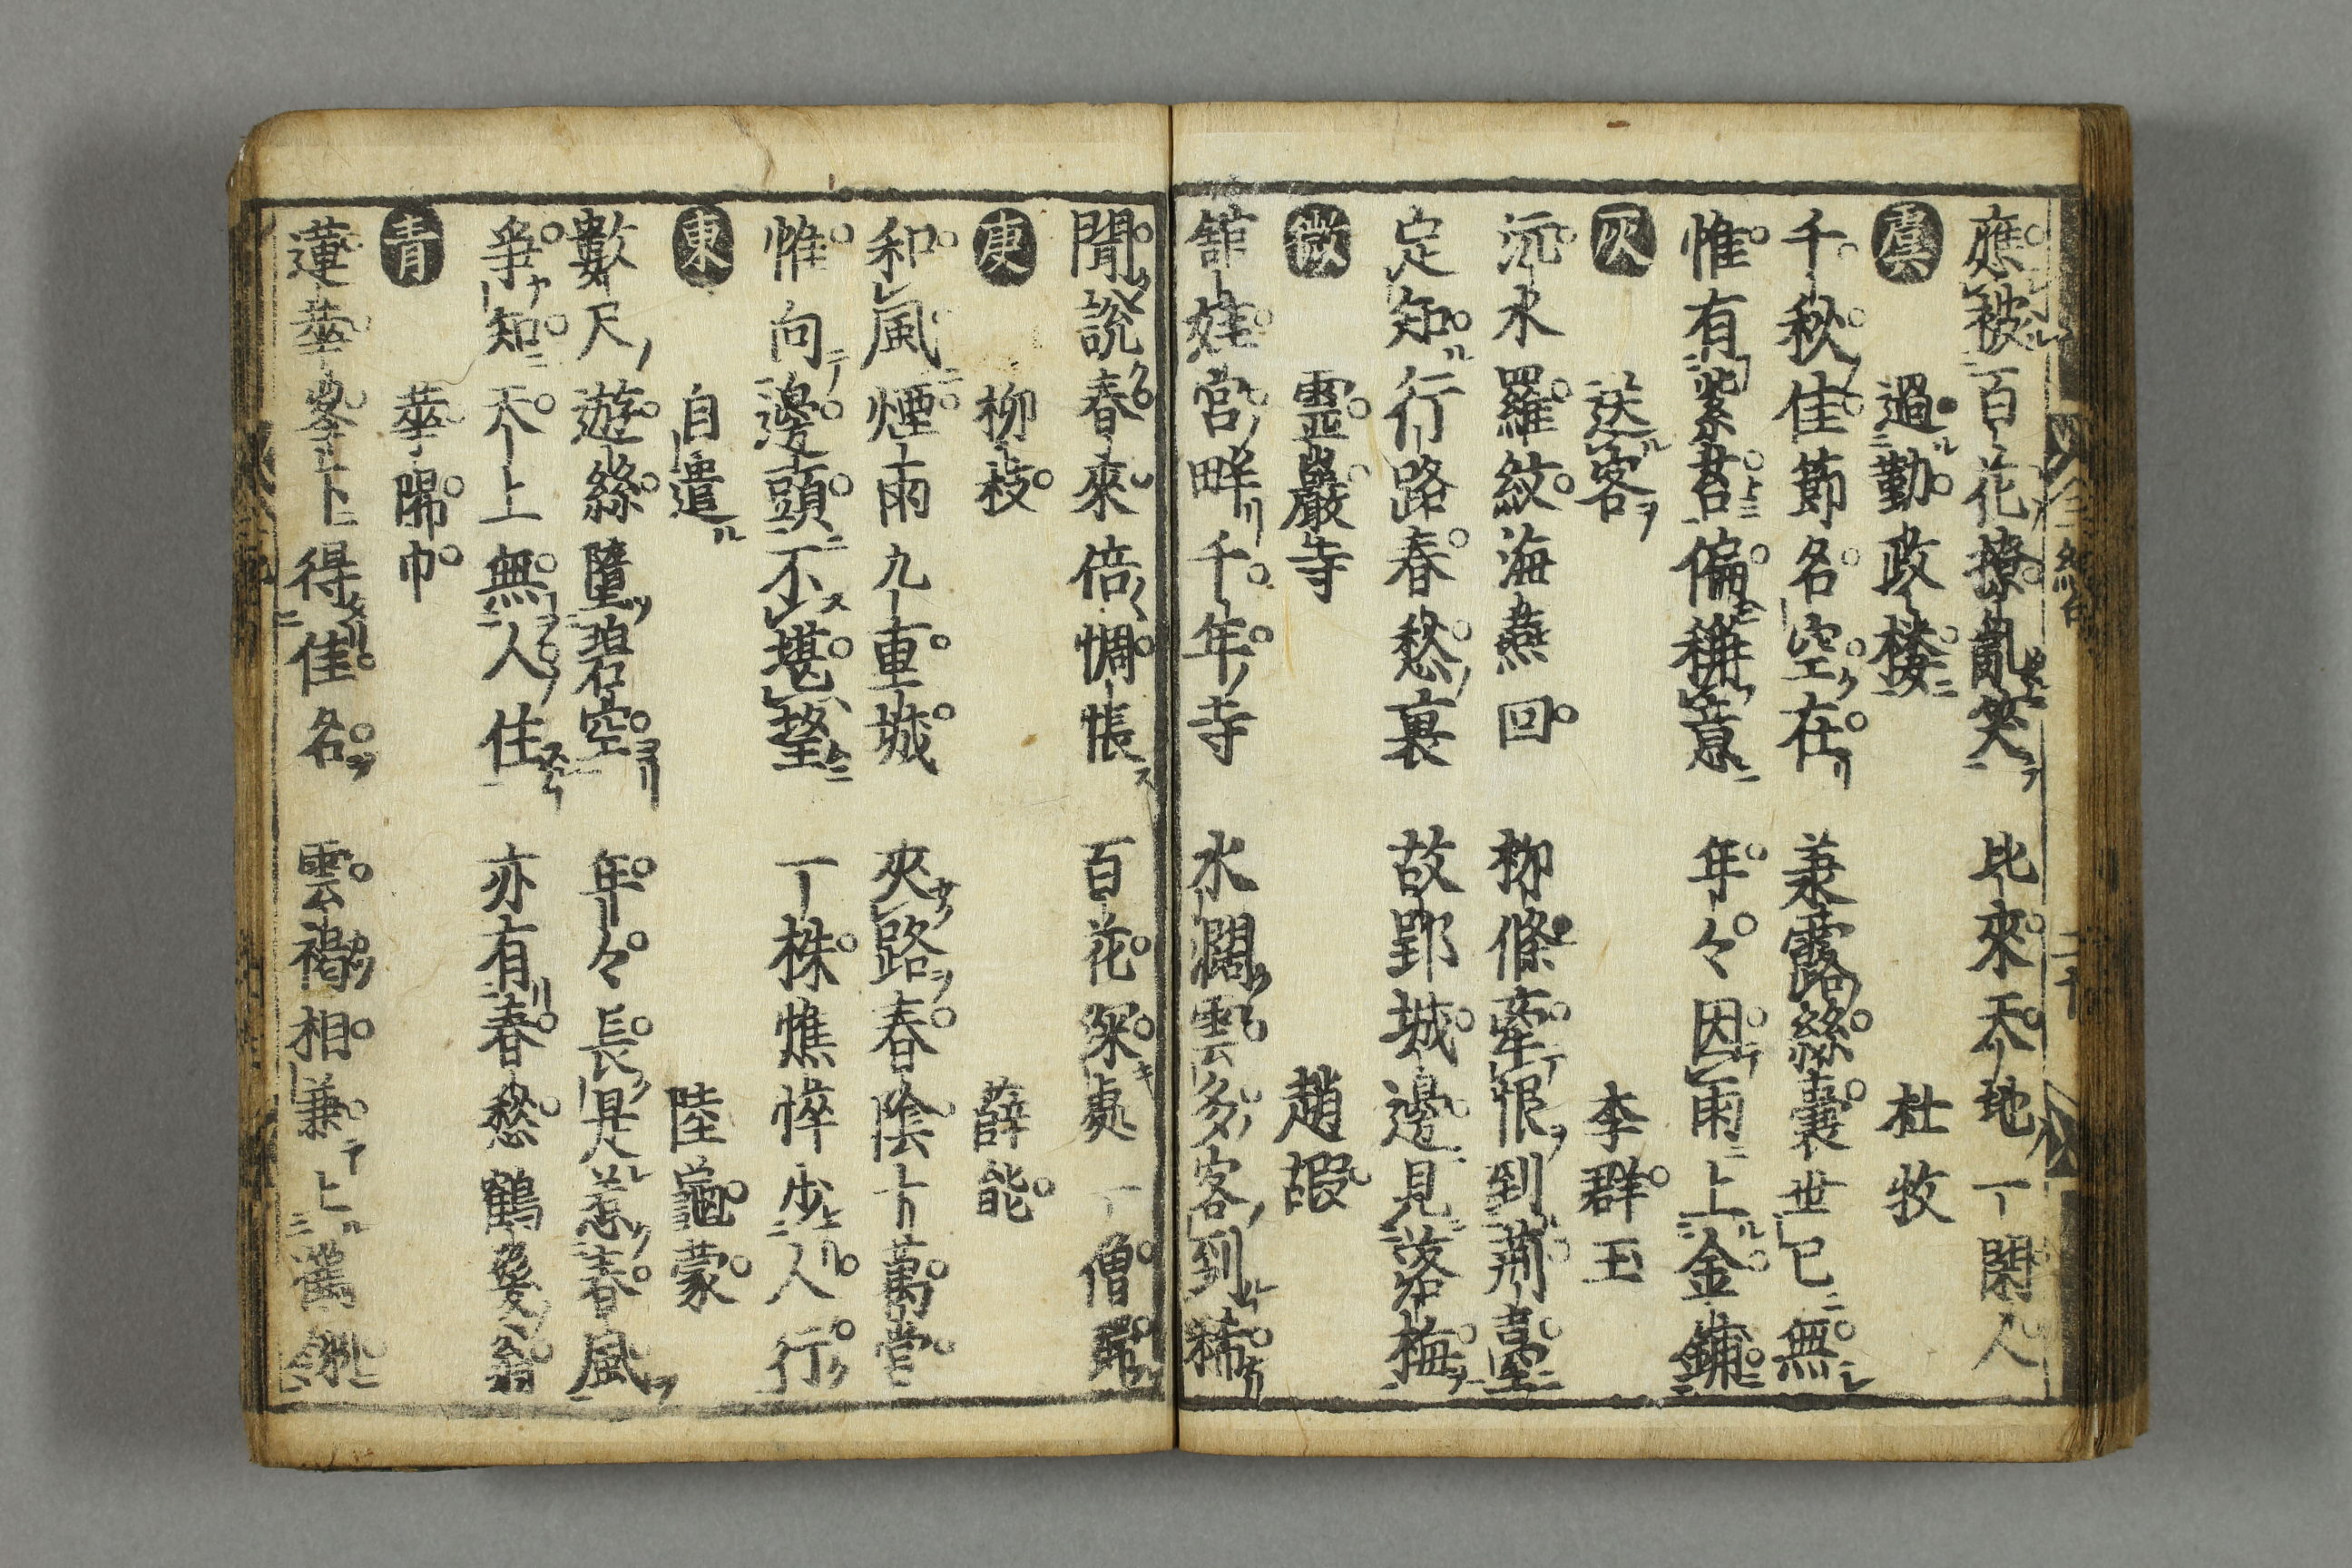 應被百花撩亂笑 比來天地一閑人
虞 過勤政樓 杜牧
千秋佳節名空在 兼露絲囊世已無
惟有紫苔偏稱意 年々因雨上金鋪
灰 送客 李群玉
沅水羅紋海燕回 柳條牽恨到荊臺
定知行路春愁裏 故郢城邊見落梅
微 霊巖寺 趙嘏
舘娃宮畔千年寺 水闊雲多客到稀
聞說春來倍惆悵 百花深處一僧歸
庚 柳枝 薛能
和風煙雨九重城 夾路春陰十萬営
惟向邊頭不堪望 一株憔悴少人行
東 自遣 陸龜蒙
數尺遊絲墮碧空 年々長是惹春風
爭知天上無人住 亦有春愁鶴髮翁
青 華陽巾
蓮華峯下得佳名 雲褐相兼上鶴翎
三体絶句 二十